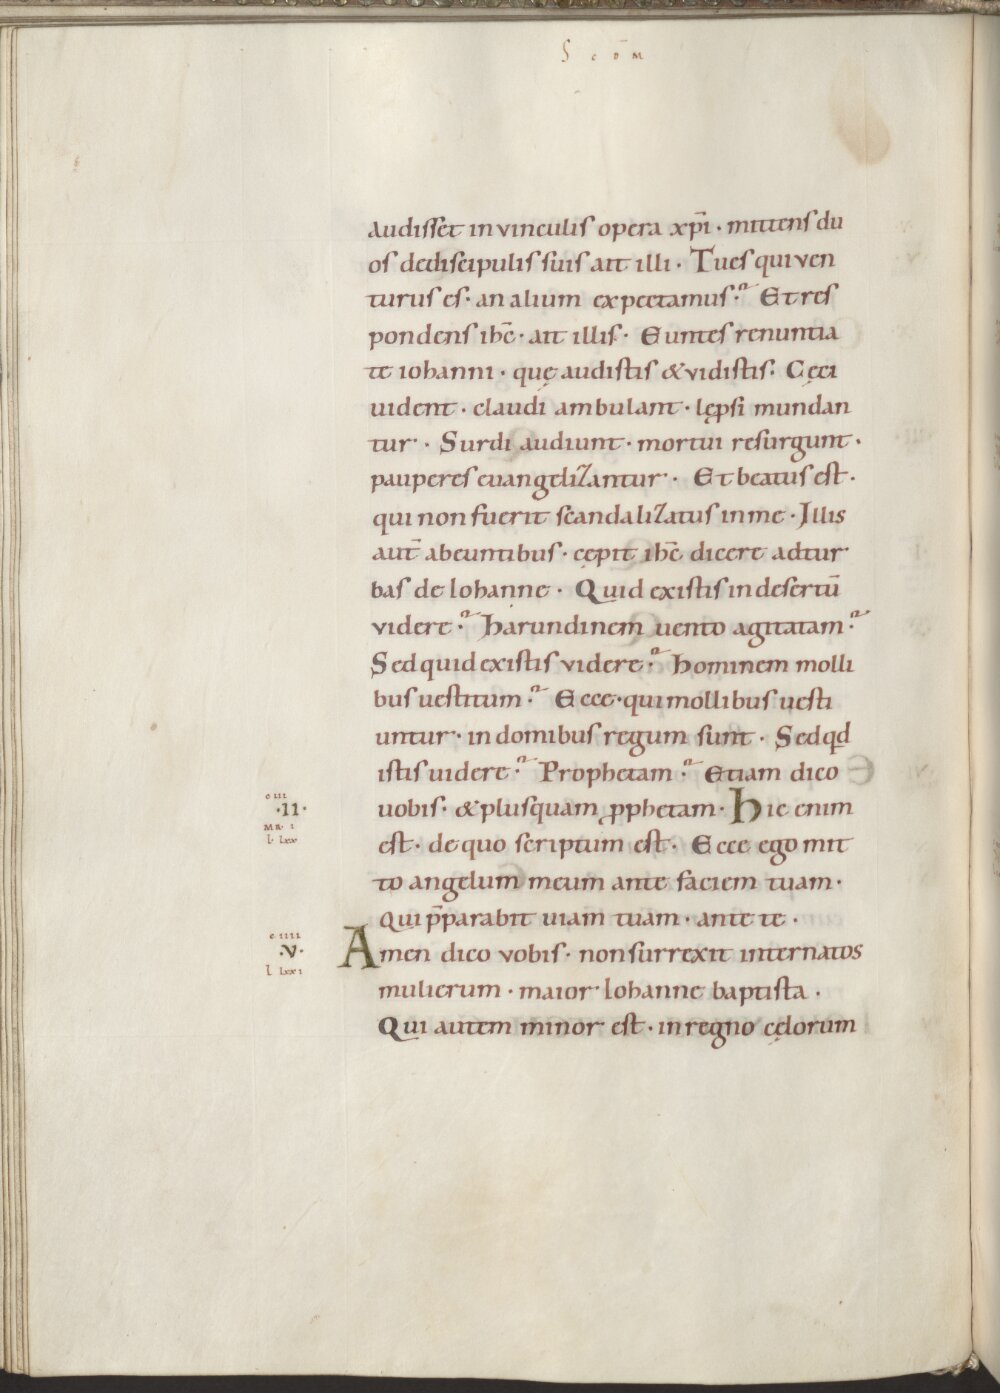 S c̄ ō m
audisset in vinculis opera xp̄i · mittens du
os dediscipulis suis ait illi · Tu es qui ven
turus es · an alium expectamus? Et res
pondens ihc̄ · ait illis · Euntes renuntia
te iohanni · quę audistis & vidistis · Cęci
uident · claudi ambulant · lęprsi mundan
tur · Surdi audiunt · mortui resurgunt ·
pauperes euangelizantur · Et beatus est ·
qui non fuerit scandalizatus in me · Illis
aut̄ abeuntibus · cępit ihc̄ dicere ad tur
bas de Iohanne · Quid existis in desertū
videre? harundinem uento agitatam?
Sed quid existis videre? hominem molli
bus uestitum? Ecce · qui mollibus uesti
untur · in domibus regum sunt · Sed qd
istis uidere? Prophetam? Etiam dico
uobis · & plusquam ꝓphetam · hic enim
est · de quo scriptum est · Ecce ego mit
to angelum meum ante faciem tuam ·
qui p̄parabit uiam tuam · ante te ·
Amen dico vobis · non surrexit inter natos
mulierum · maior Iohanne baptista ·
Qui autem minor est · in regno cęlorum
c III
· II ·
MR · I
L · Lxx
c IIII
· V ·
L Lxx I